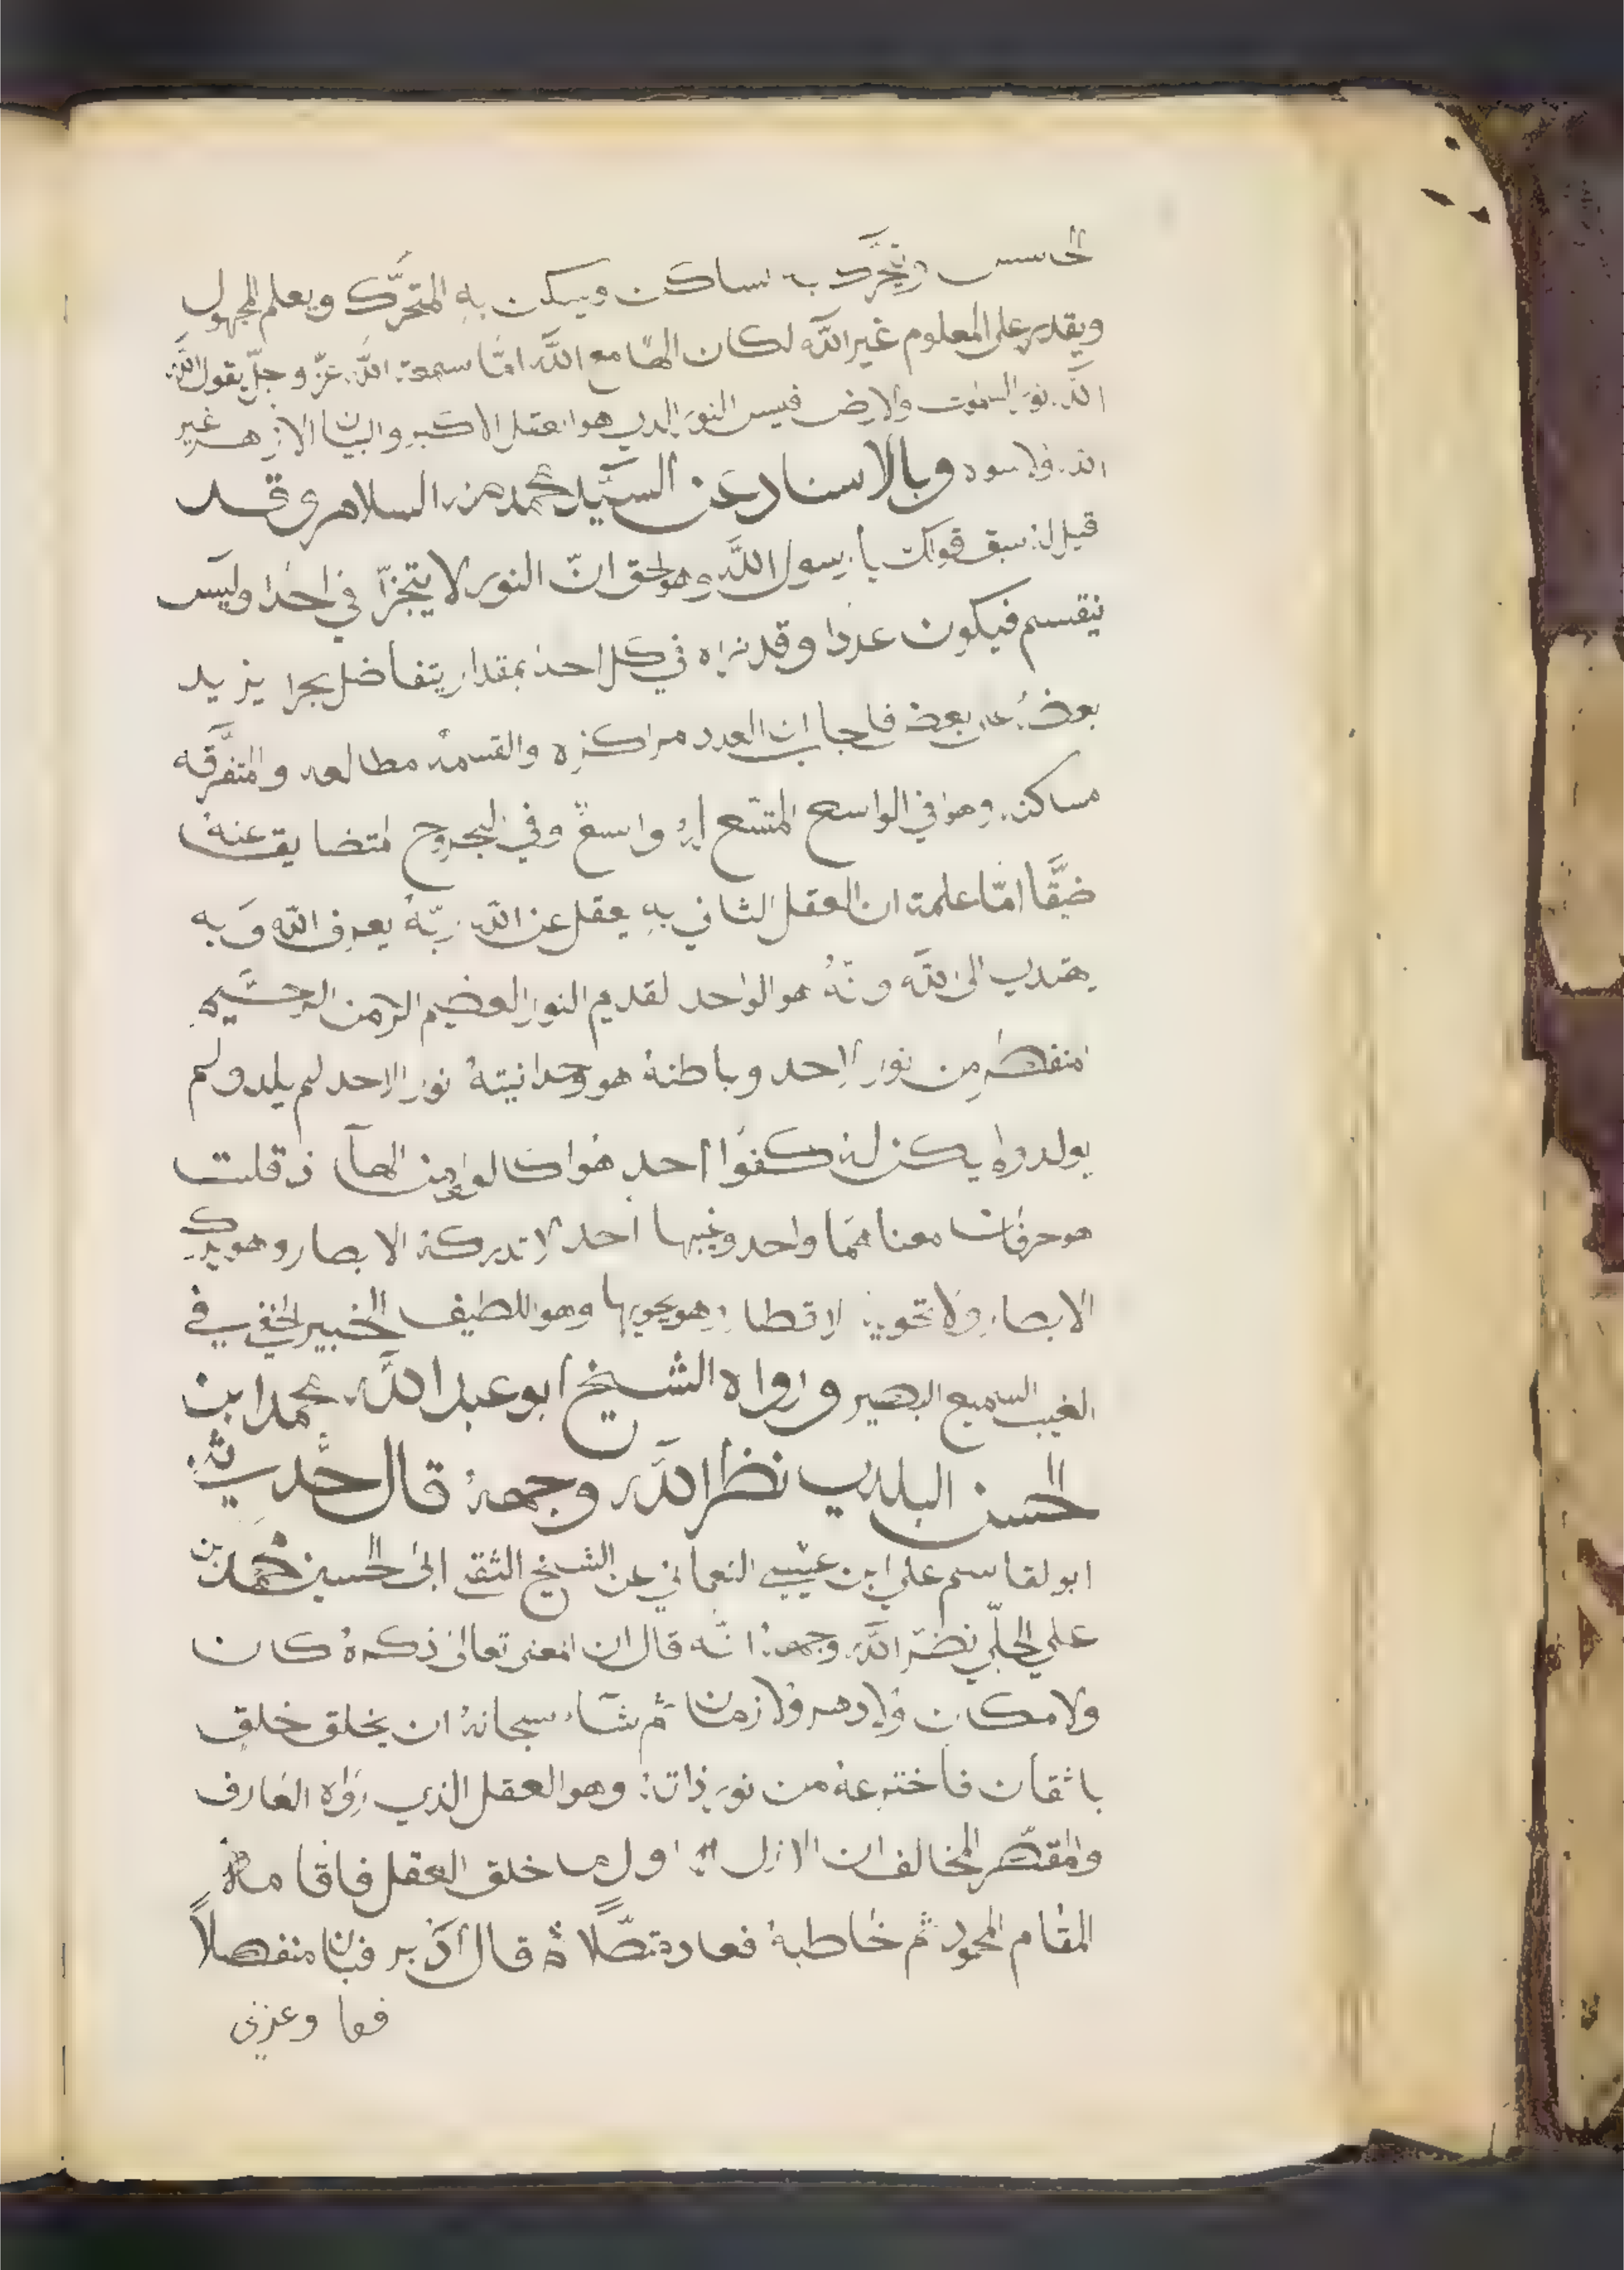 الحاسس ويتحرك به الساكن ويسكن به المتحرّك ويعلم المجهول
ويقدر على المعلوم غير الله لكان الهًا مع الله امّا سمعت الله عزّ وجلّ يقول الله
الله نور السموت والارض فليس النور الذي هو العقل الاكبر والبيان الازهر غير
الله ولا سوه وبالاسناد عن السيّد محمد منه السلام وقد
قيل له سبق قولك يا رسول الله وهو الحق انّ النور لا يتجزّا في احدا وليس
ينقسم فيكون عددا وقد نراه في كل احد بمقدار يتفاضل بجرا يزيد
بعضه على بعض فاجاب ان العدد مراكزه والقسمة مطالعه والمتفرّقه
مساكنه وهو في الواسع المتسع واسعً وفي المتضايق عنه
ضيّقًا امّا علمت ان العقل الثاني به يعقل عن الله ربّهُ يعرف الله وَبه
يهتدي الى الله وانّهُ هو الواحد القديم النور العضيم الرحمن الرحيم
منفصل من نور الاحد وباطنهُ هو وحدانيتهُ نور الاحد لم يلد ولم
يولد ولم يكن له كفوًا احد هو كالواو من الهآ اذ قلت
هو حرفان معناهمَا واحد وغيبها احد لا تدركه الابصار وهو يدرك
الابصار ولا تحويه الاقطار وهو يحويها وهو اللطيف الخبير الخفي في
الغيب السميع البصير ورواه الشيخ ابو عبد الله محمد ابن
الحسن البلدي نظر الله وجهه قال حدّثني
ابو لقاسم علي ابن عيسى النعماني عن الشيخ الثقة ابي الحسين محمد بن
علي الجلّي نضّر الله وجهه انّه قال ان المعنى تعالى ذكرهُ كان
ولا مكان ولا دهر ولا زمان ثم شاء سبحانهُ ان يخلق خلق
باتقان فاخترعهُ من نور ذاته وهو العقل الذي رواه العارف
والمقصّر المخالف ان الازل اول ما خلق العقل فاقامهُ
المقام المحمود ثم خاطبهُ فعاد متصّلاً ثم قال ادبر فبان منفصلاً
فقا وعزتي